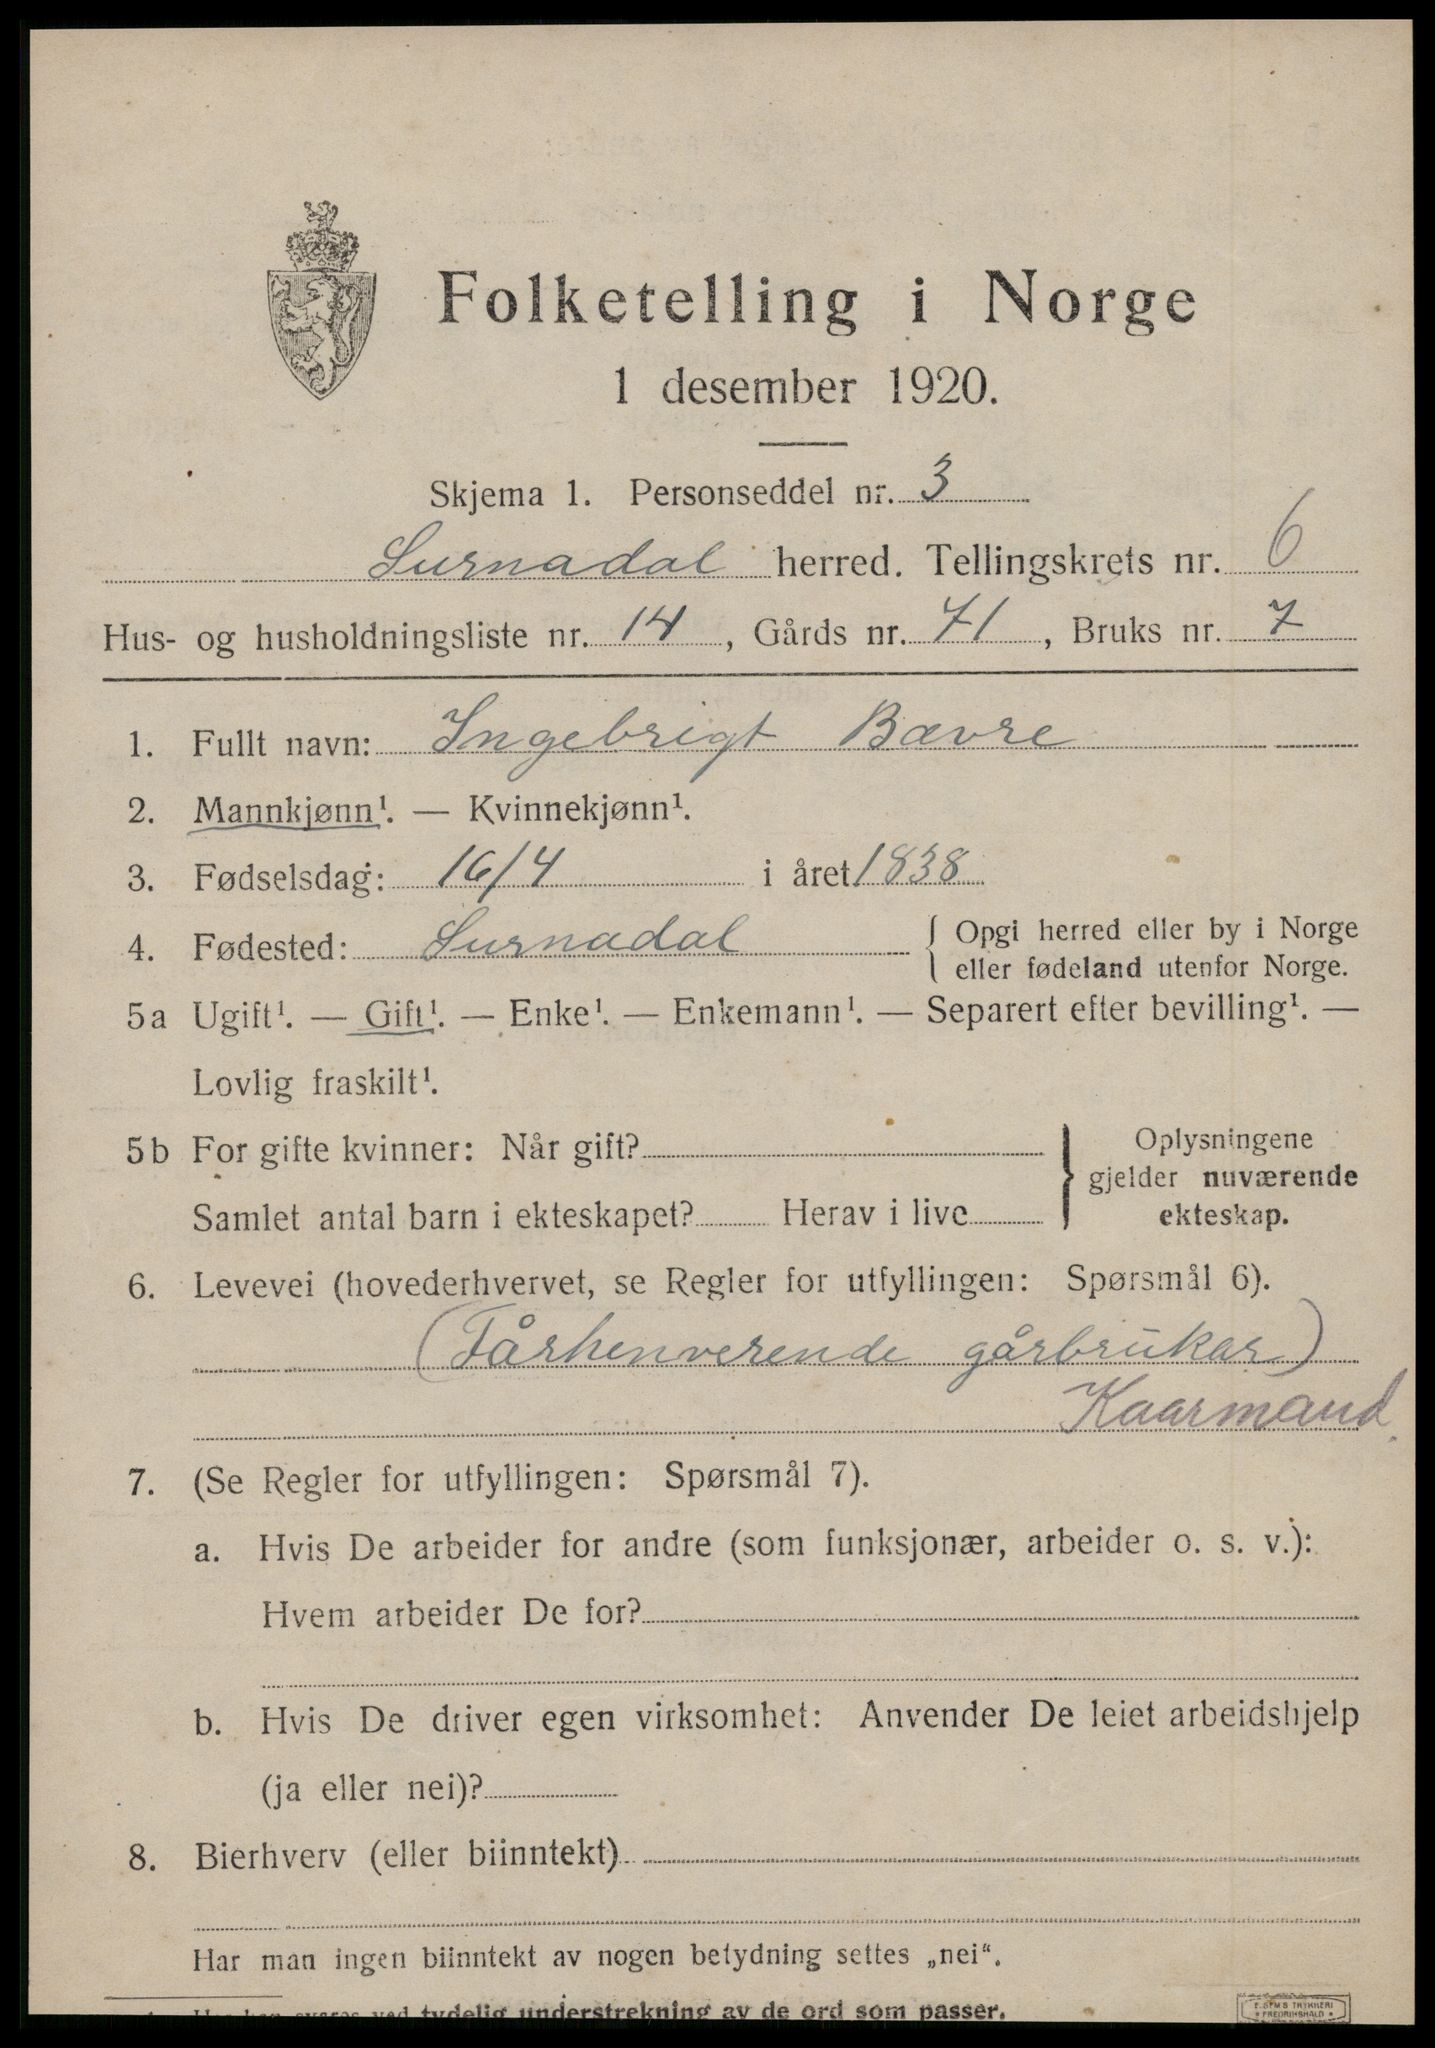 Folketelling i Norge
1 desember 1920.
Skjema 1. Personseddel nr. 3
Surnadal herred. Tellingskrets nr. 6
Hus- og husholdningsliste nr. 14, Gårds nr. 71, Bruks nr. 7
1. Fullt navn: Ingebrigt Bævre
2. Mannkjønn¹. — Kvinnekjønn¹.
3. Fødselsdag: 16/4 i året 1838
4. Fødested: Surnadal { Opgi herred eller by i Norge
eller fødeland utenfor Norge.
5a Ugift¹. — Gift¹. — Enke¹. — Enkemann¹. — Separert efter bevilling¹. —
Lovlig fraskilt¹.
5b For gifte kvinner: Når gift? } Oplysningene
gjelder nuværende
Samlet antal barn i ekteskapet? Herav i live ekteskap.
6. Levevei (hovederhvervet, se Regler for utfyllingen: Spørsmål 6).
(Fårhenverende gårbrukar)
Kaarmand.
7. (Se Regler for utfyllingen: Spørsmål 7).
a. Hvis De arbeider for andre (som funksjonær, arbeider o. s. v.):
Hvem arbeider De for?
b. Hvis De driver egen virksomhet: Anvender De leiet arbeidshjelp
(ja eller nei)?
8. Bierhverv (eller biinntekt)
Har man ingen biinntekt av nogen betydning settes „nei“.
¹ Her kan svares ved tydelig understrekning av de ord som passer.
E. SEMS TRYKKERI
FREDRIKSHALD